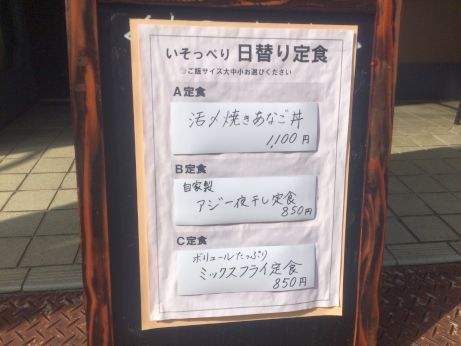 いそっぺり 日替り定食
ご飯サイズ大中小お選びください
A定食
活〆焼きあなご丼
1,100円
B定食
自家製
アジ一夜干し定食
850円
C定食
ボリュームたっぷり
ミックスフライ定食
850円